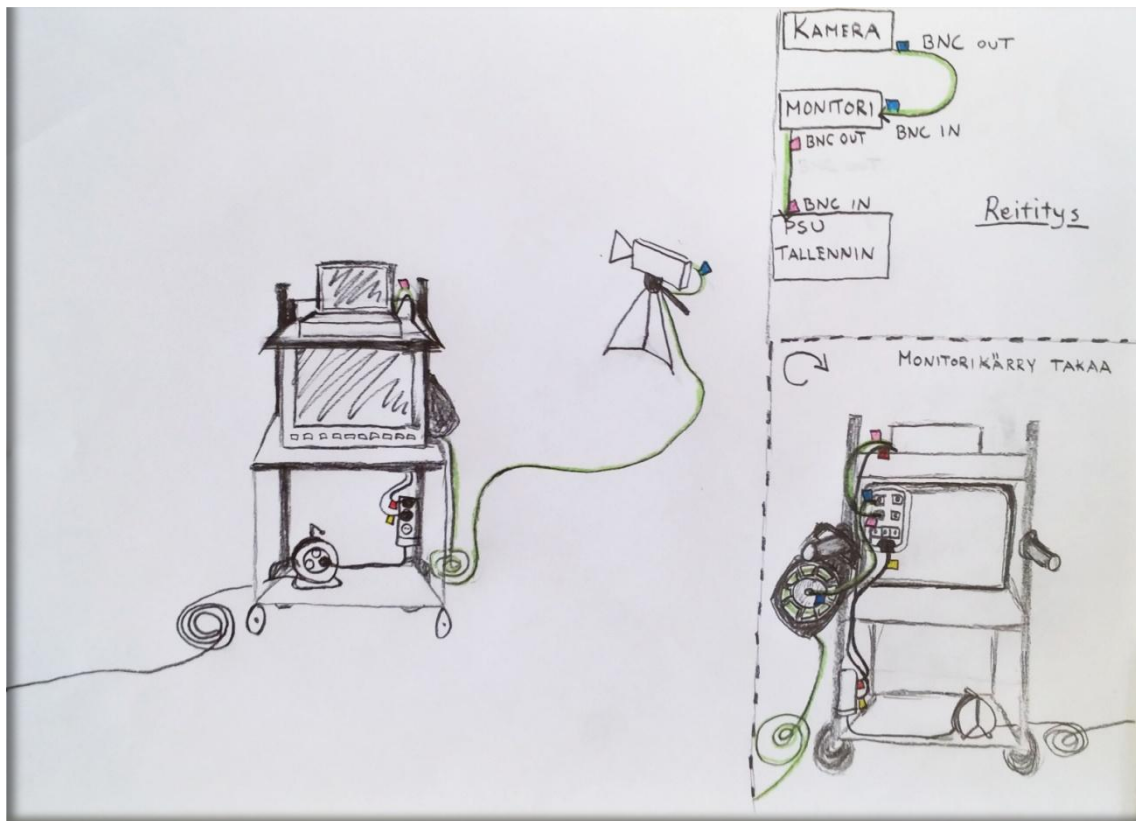 KAMERA
BNC OUT
MONITORI
BNC IN
BNC OUT
BNC IN
PSU
TALLENNIN
Reititys
MONITORIKÄRRY TAKAA